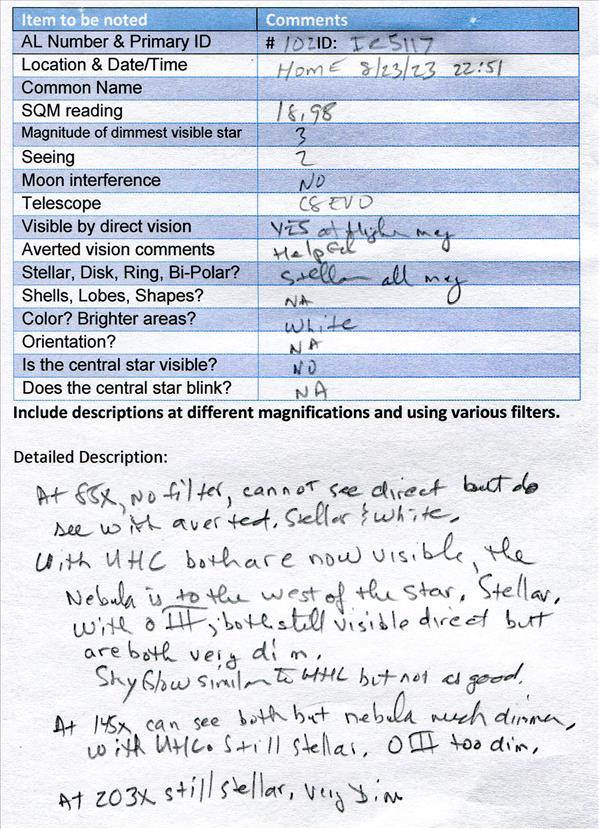 Item to be noted Comments
AL Number & Primary ID # 102 ID: IC5117
Location & Date/Time Home 8/23/23 22:51
Common Name
SQM reading 18.98
Magnitude of dimmest visible star 3
Seeing 2
Moon interference NO
Telescope C8 EVO
Visible by direct vision YES at higher mag
Averted vision comments Helped
Stellar, Disk, Ring, Bi-Polar? Stellar all mag
Shells, Lobes, Shapes? NA
Color? Brighter areas? White
Orientation? NA
Is the central star visible? NO
Does the central star blink? NA
Include descriptions at different magnifications and using various filters.
Detailed Description:
At 85x, no filter, cannot see direct but do
see with averted. Stellar & white.
With UHC both are now visible, the
Nebula is to the west of the star. Stellar.
With OIII, both still visible direct but
are both very dim.
Sky Glow similar to UHC but not as good.
At 145x can see both but nebula much dimmer,
with UHC. Still stellar. OIII too dim.
At 203x still stellar, very dim